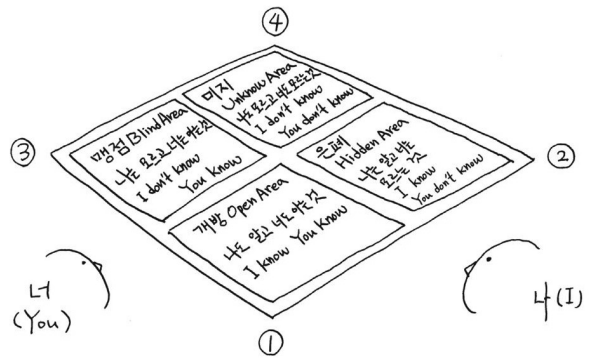 ④
미지
Unknow Area
나도 모르고 너도 모르는 것
I don't know
You don't know
③
맹점 Blind Area
나는 모르고 너는 아는 것
I don't know
You know
②
은폐
Hidden Area
나는 알고 너는
모르는 것
I know
You don't know
개방 Open Area
나도 알고 너도 아는 것
I know You know
①
너
(You)
나 (I)